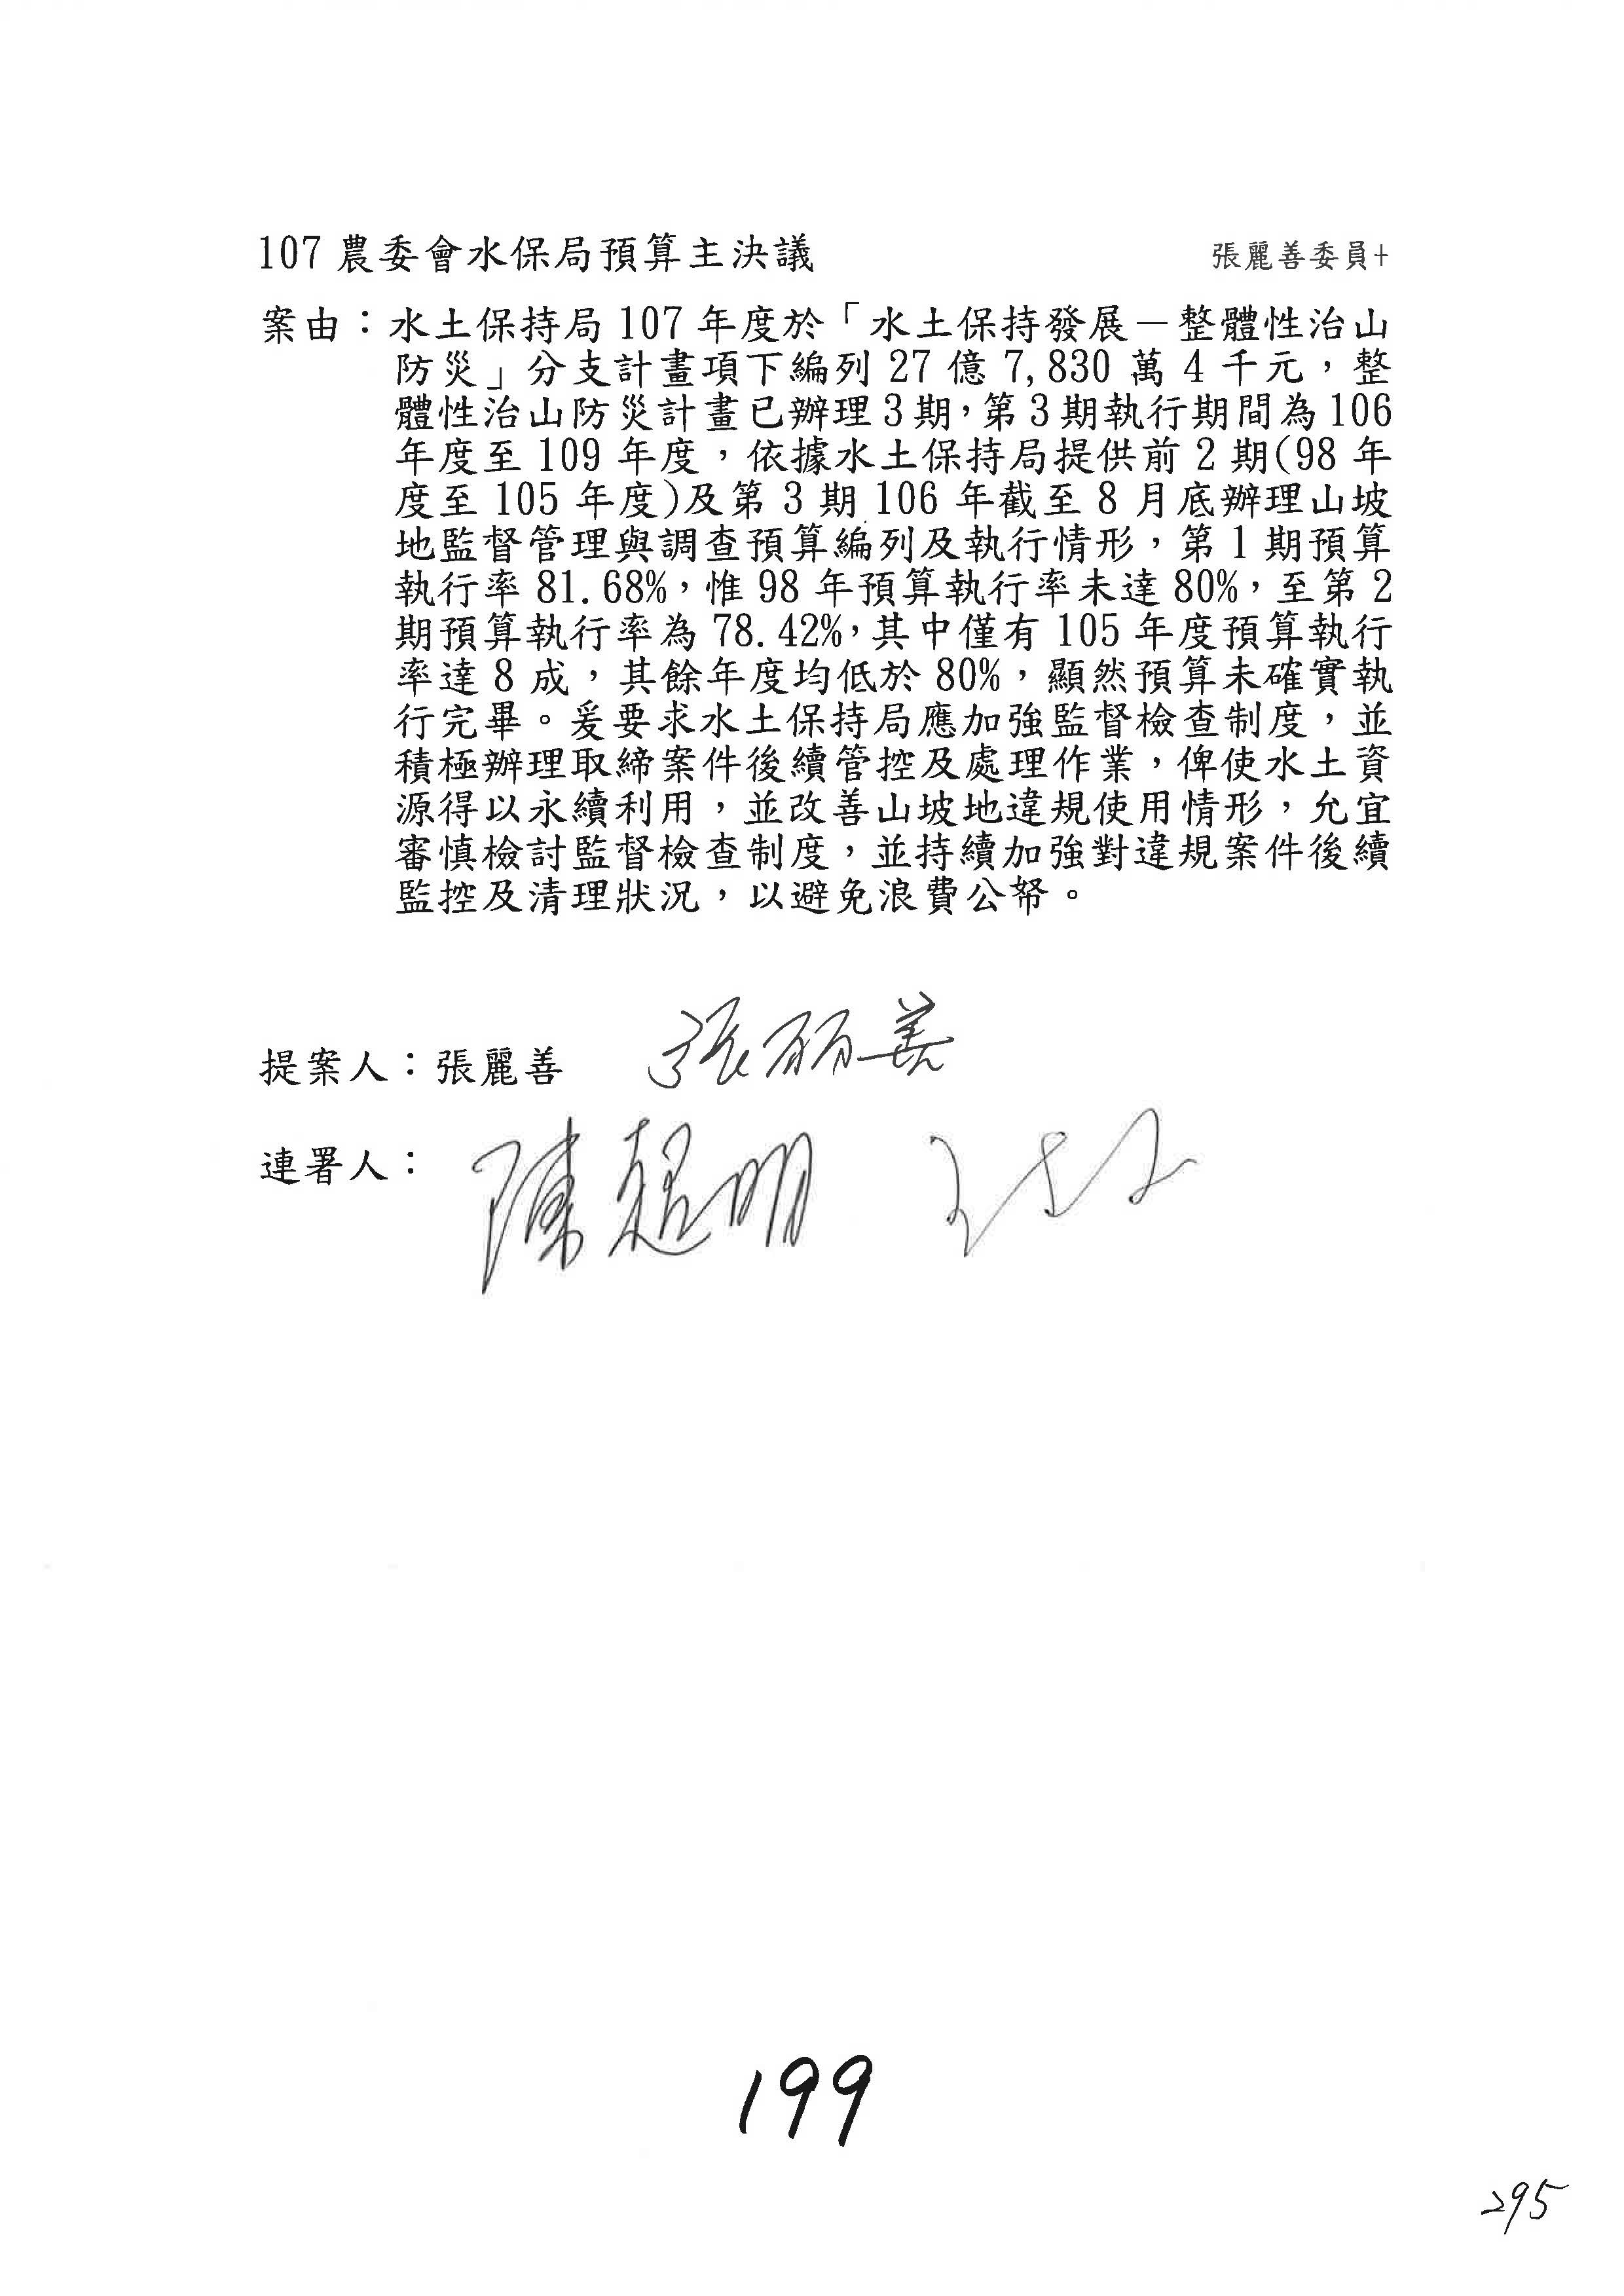 107 農委會水保局預算主決議 張麗善委員+
案由：水土保持局 107 年度於「水土保持發展－整體性治山
防災」分支計畫項下編列 27 億 7,830 萬 4 千元，整
體性治山防災計畫已辦理 3 期，第 3 期執行期間為 106
年度至 109 年度，依據水土保持局提供前 2 期(98 年
度至 105 年度)及第 3 期 106 年截至 8 月底辦理山坡
地監督管理與調查預算編列及執行情形，第 1 期預算
執行率 81.68%，惟 98 年預算執行率未達 80%，至第 2
期預算執行率為 78.42%，其中僅有 105 年度預算執行
率達 8 成，其餘年度均低於 80%，顯然預算未確實執
行完畢。爰要求水土保持局應加強監督檢查制度，並
積極辦理取締案件後續管控及處理作業，俾使水土資
源得以永續利用，並改善山坡地違規使用情形，允宜
審慎檢討監督檢查制度，並持續加強對違規案件後續
監控及清理狀況，以避免浪費公帑。
提案人：張麗善 張麗善
連署人：陳超明
199
295